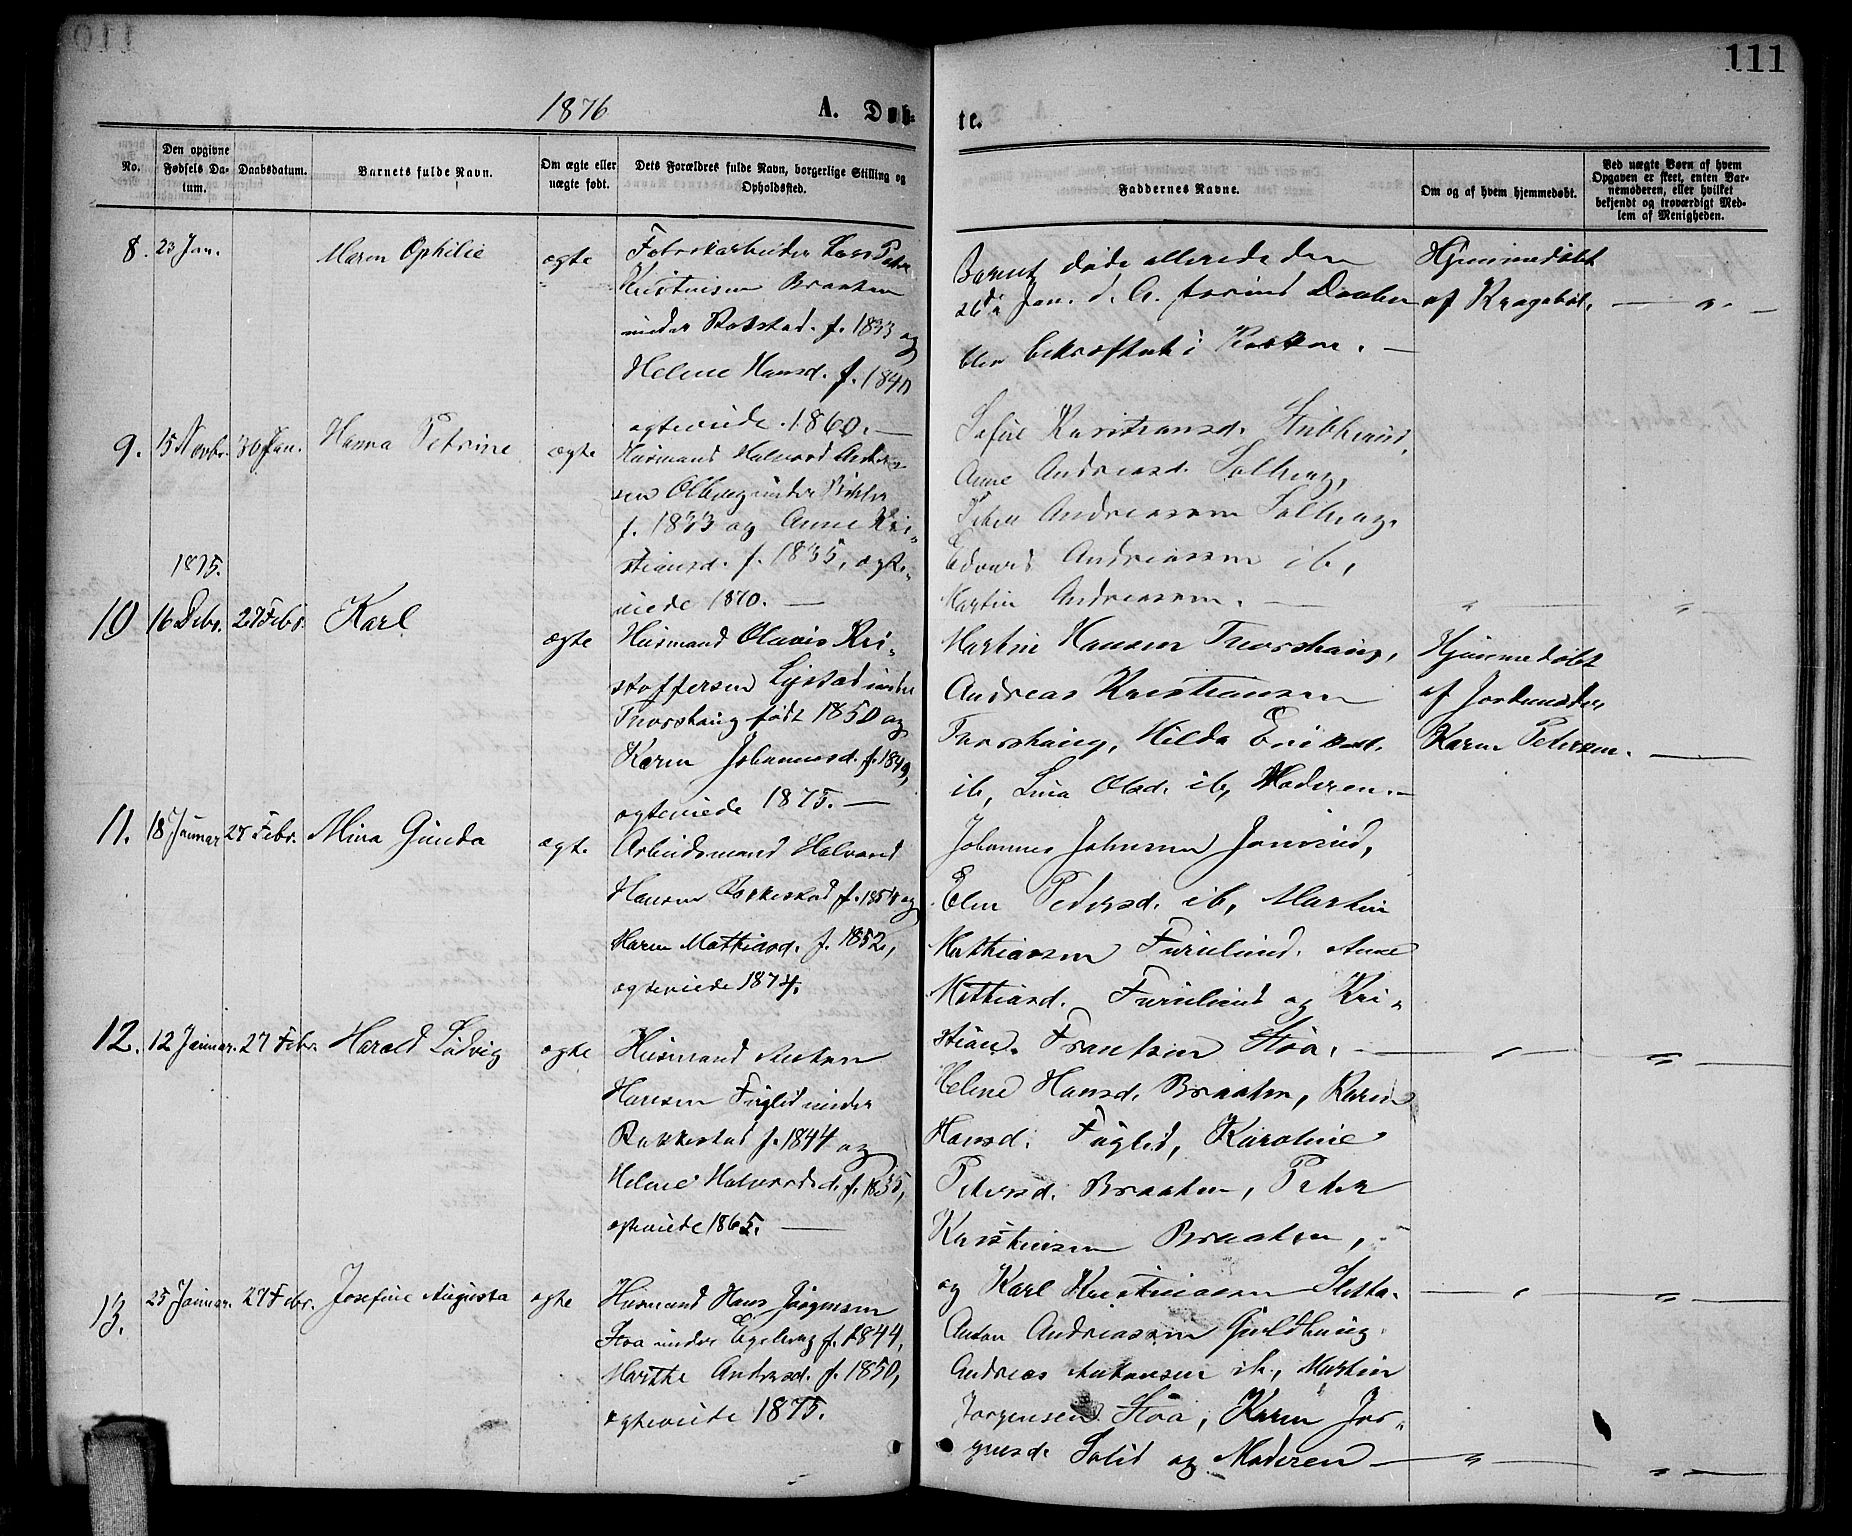 111
1876
A. Døb-
te.
No.
Den opgivne Fødsels Da-tum.
Daabsdatum.
Barnets fulde Navn.
Om ægte eller nægte født.
Dets Forældres fulde Navn, borgerlige Stilling og Opholdsted.
Faddernes Navne.
Om og af hvem hjemmedøbt.
Ved nægte Børn af hvem Opgaven er skeet, enten Bar-nemoderen, eller hvilket bekjendt og troværdigt Med-lem af Menigheden.
8. 23 Jan. Maren Ophilie ægte
Fabrikarbeider Lars Peter
Kristiansen Braaten
under Rokstad f. 1833 og
Helene Hansd. f. 1840
ægteviede 1860. —
Barnet døde allerede den
26de Jan. d. A. førend Daaben
blev bekræftet i Kirken. —
Hjemmedøbt
af Kragebøl.
9. 15 Novbr. 30 Jan. Hanna Petrine ægte
Husmand Halvord Ander-
sen Olberg under
f. 1833 og Anne Kri-
stiansd. f. 1835, ægte-
viede 1870. —
Sofie Kristiansd. Stubberud,
Anne Andreasd. Solberg,
Peter Andreassen Solberg,
Edvard Andreassen ib,
Martin Andreassen. —
1875.
10 16 Debr. 27 Febr. Karl ægte
Husmand Olavis Kri-
stoffersen Lystad under
Thorshaug født 1850 og
Karen Johannesd. f. 1849,
ægteviede 1875. —
Martin Hansen Thorshaug,
Andreas Kristiansen
Thorshaug, Hilda Eriksd.
ib, Lina Olsd. ib, Moderen. —
Hjemmedøbt
af Jordemoder
Karen Petersen.
11. 18 Januar 27 Febr. Mina Gunda ægte
Arbeidsmand Halvord
Hansen Rokkestad f. 1854 og
Karen Mathiasd. f. 1852,
ægteviede 1874.
Johannes Johnsen Jonsrud,
Elen Pedersd. ib, Martin
Mathiassen Furulund. Anne
Mathiasd. Furulund og Kri-
stian Frantsen Stoa. —
12. 12 Januar. 27 Febr. Harald Ludvig ægte
Husmand Anton
Hansen Fugled under
Rokkestad f. 1844 og
Helene Halvordsd. f. 1835,
ægteviede 1865. —
Helene Hansd. Braaten, Karen
Hansd. Fuglid, Karoline
Petersd. Braaten, Peter
Kristiansen Braaten,
og Karl Kristiansen Sletta.
13. 25 Januar. 27 Febr. Josefine Augusta ægte
Husmand Hans Jørgensen
Stoa under Egeberg f. 1844,
Marthe Andersd. f. 1850,
ægteviede 1875.
Anton Andreassen Guldhaug.
Andreas Antonsen ib., Martin
Jørgensen Stoa, Karen Jør-
gensd. Solid og Moderen —